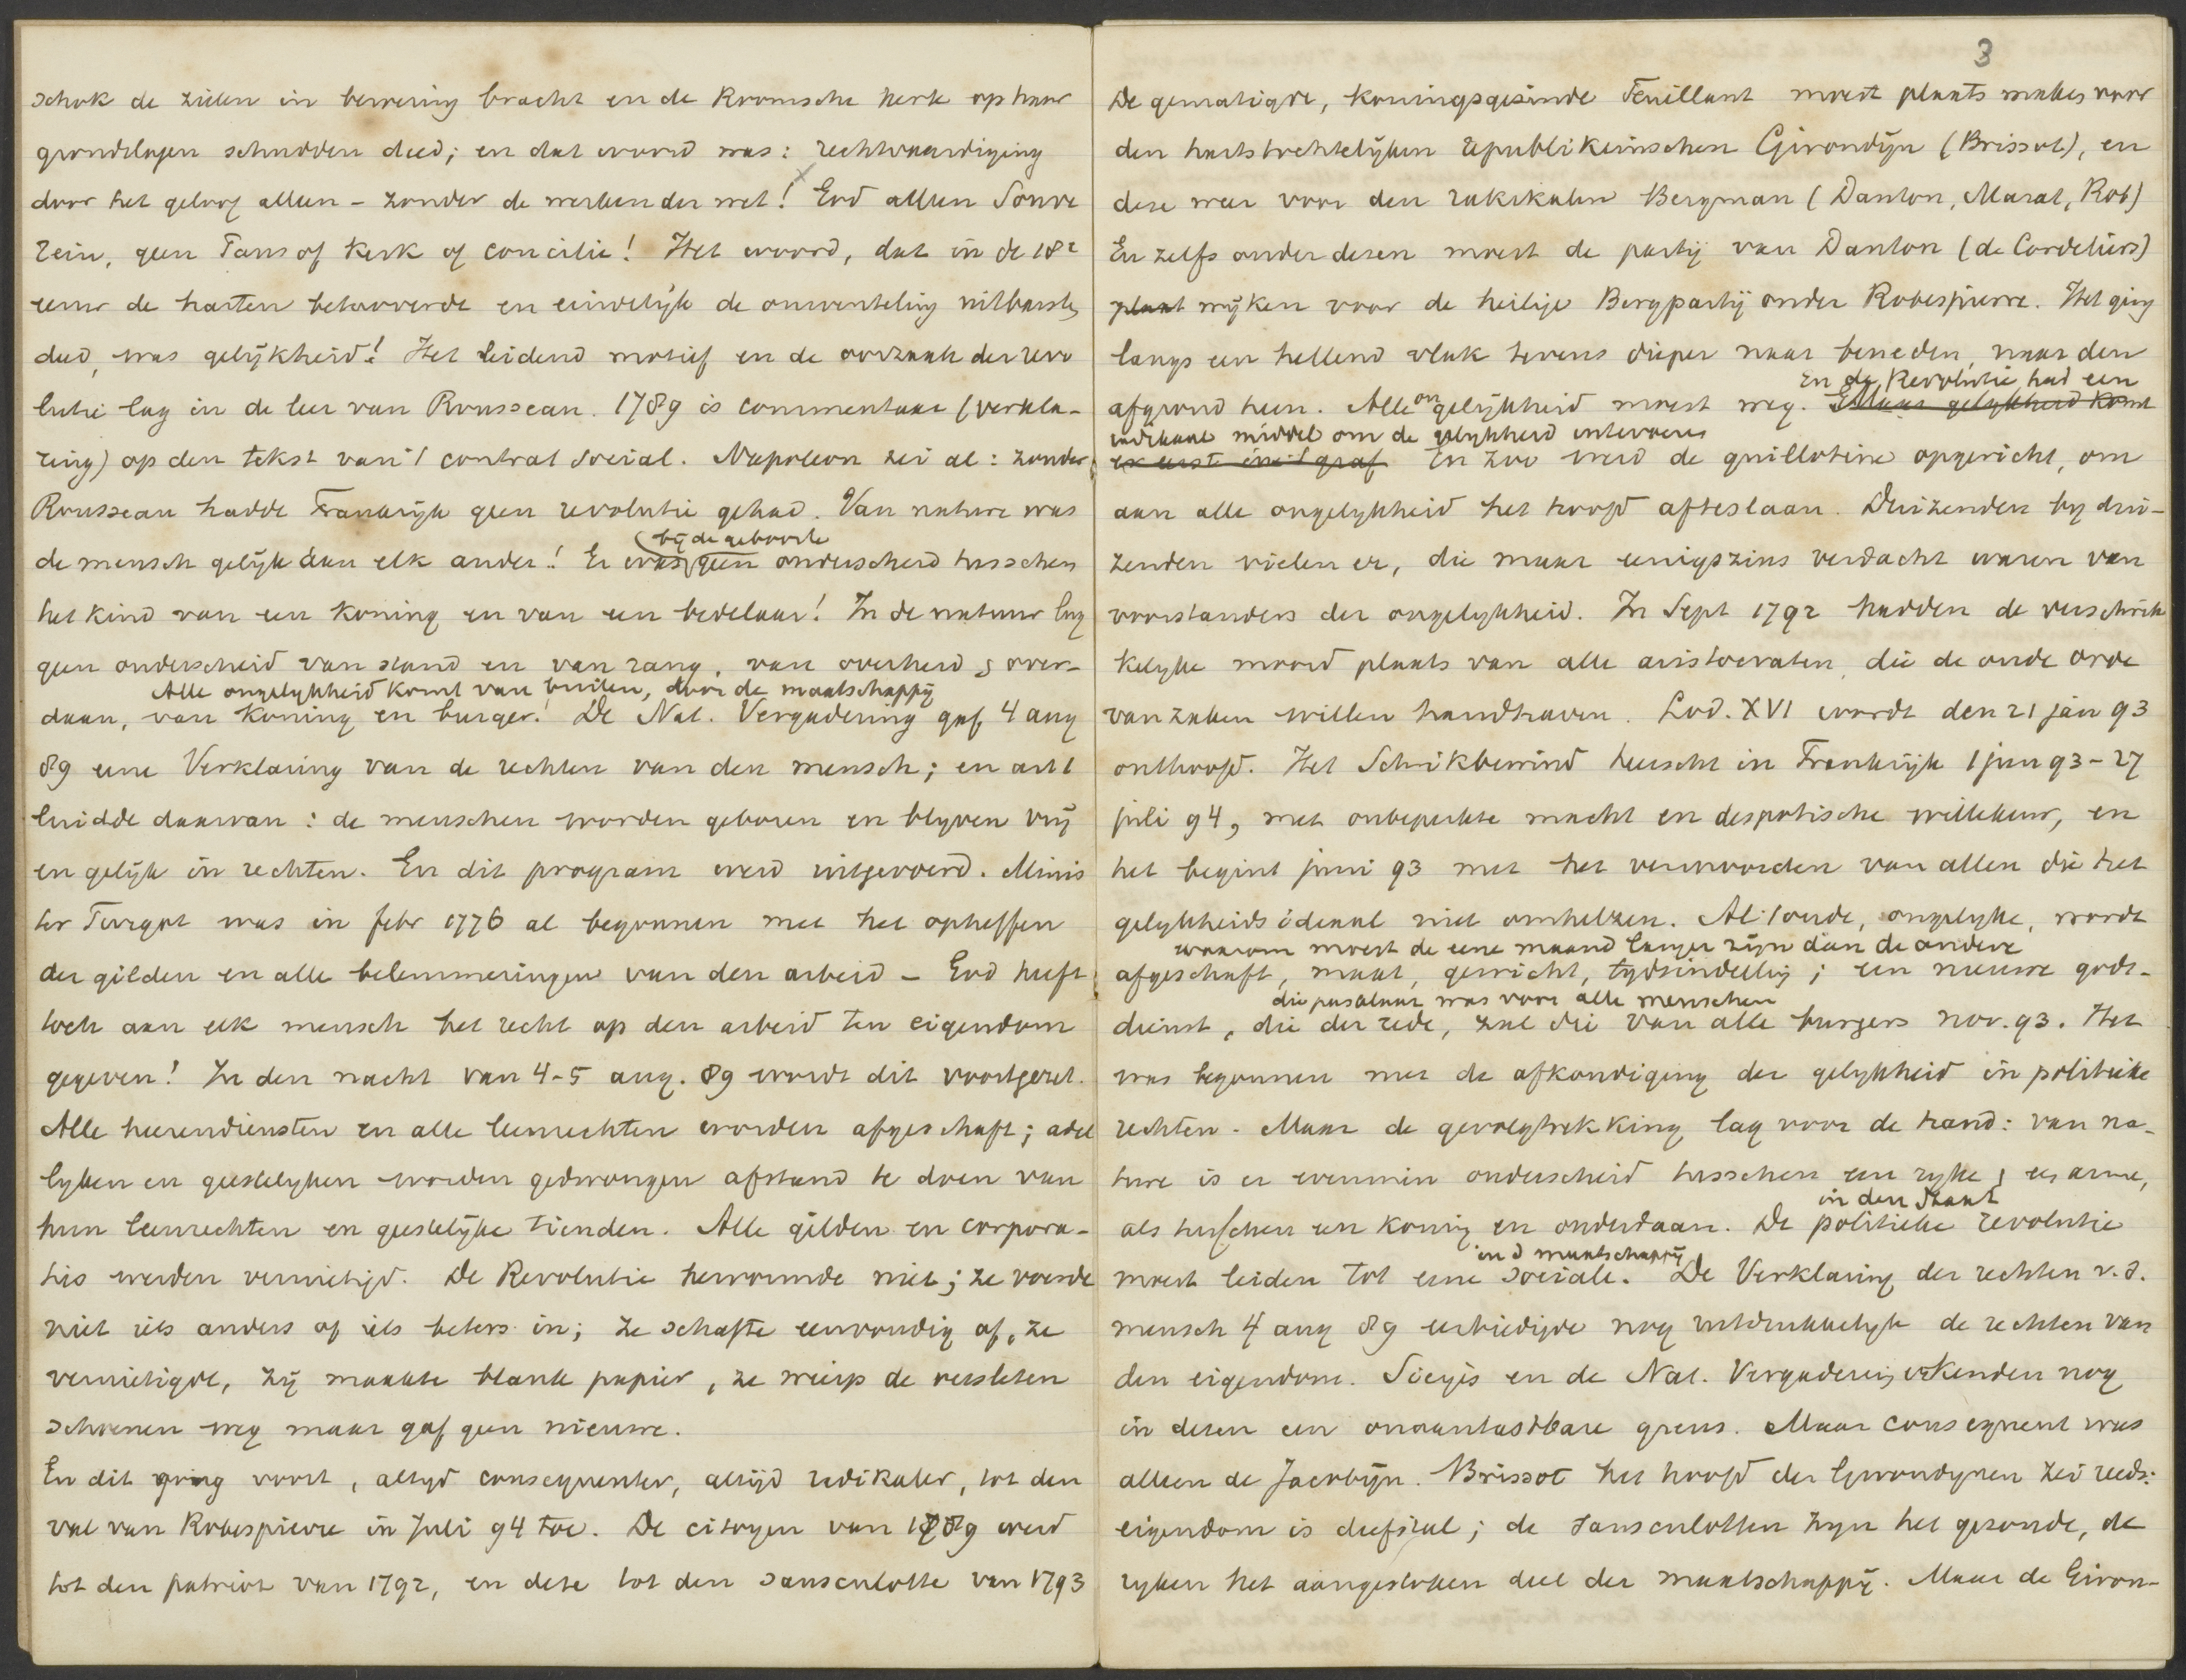 schok de zielen in beweering bracht en de Roomsche kerk op haar
grondslagen schudden deed; en dat woord was: rechtvaardiging
door het geloof alleen – zonder de werken der wet! God alleen Souve
rein, geen Paus of kerk of concilie! Het woord, dat in de 18e
eeuw de harten betooverde en eindelijk de omwenteling uitbarsten
deed, was gelijkheid! Het leidend motief en de oorzaak der revo
lutie lag in de leer van Rousseau. 1789 is commentaar (verkla-
ring) op den tekst van 't contrat social. Napoleon zei al: zonder
Rousseau hadde Frankrijk geen revolutie gehad. Van nature was
de mensch gelijk aan elk ander! Er was bij de geboorte geen onderscheid tusschen
het kind van een koning en van een bedelaar! In de natuur lag
geen onderscheid van stand en van rang, van overheid & onder-
Alle ongelykheid komt van buiten, door de maatschappij
daan, van koning en burger! De Nat. Vergadering gaf 4 aug
89 eene Verklaring van de rechten van den mensch; en art 1
luidde daarvan: de menschen worden geboren en blyven vrij
en gelijk in rechten. En dit program werd uitgevoerd. Minis
ter Turgot was in febr 1776 al begonnen met het opheffen
der gilden en alle belemmeringen van den arbeid – God heeft
toch aan elk mensch het recht op den arbeid ten eigendom
gegeven! In den nacht van 4-5 aug. 89 wordt dit voortgezet.
Alle heerendiensten en alle leenrechten worden afgeschaft; adel
lyken en geestelyken worden gedwongen afstand te doen van
hun leenrechten en geestelijke tienden. Alle gilden en corpora-
ties werden vernietigd. De Revolutie hervormde niet; ze voerde
niet iets anders of iets beters in; ze schafte eenvoudig af, ze
vernietigde, zij maakte blank papier, ze wierp de versleten
schoenen weg maar gaf geen nieuwe.
En dit ging voort, altyd consequenter, altijd radikaler, tot den
val van Robespierre in Juli 94 toe. De citoyen van 1789 werd
tot den patriot van 1792, en deze tot den sansculotte van 1793
3
De gematigde, koningsgezinde Feuillant moest plaats maken voor
den hartstochtelijken republikeinschen Girondijn (Brissot), en
deze weer voor den radikalen Bergman (Danton, Marat, Rob)
En zelfs onder dezen moest de partij van Danton (de Cordeliers)
plaat wijken voor de heilige Bergpartij onder Robespierre. Het ging
langs een hellend vlak tevens dieper naar beneden, naar den
afgrond heen. Alle ongelijkheid moest weg. En de Revolutie had een
Maar gelykheid komt
radikaal middel om de gelykheid intevoeren
er eerst in 't graf. En zoo werd de guillotine opgericht, om
aan alle ongelykheid het hoofd afteslaan. Duizenden by dui-
zenden vielen er, die maar eenigszins verdacht waren van
voorstanders der ongelykheid. In Sept 1792 hadden de verschrik
kelyke moord plaats van alle aristocraten, die de oude orde
van zaken willen handhaven. Lod. XVI wordt den 21 jan 93
onthoofd. Het Schrikbewind heerscht in Frankrijk 1 juni 93 – 27
juli 94, met onbeperkte macht en despotische willekeur, en
het begint juni 93 met het vermoorden van allen die het
gelykheids ideaal niet omhelzen. Al 't oude, ongelyke, wordt
waarom moest de eene maand langer zijn dan de andere
afgeschaft, maat, gewicht, tydsindeeling; een nieuwe gods-
die pasklaar was voor alle menschen
dienst, die der rede, zal die van alle burgers nov. 93. Het
was begonnen met de afkondiging der gelykheid in politieke
rechten. Maar de gevolgtrekking lag voor de hand: van na-
ture is er evenmin onderscheid tusschen een ryke & een arme,
als tusschen een koning en onderdaan. De politieke revolutie in den Staat
moest leiden tot eene sociale. in d maatschappij De Verklaring der rechten v. d.
mensch 4 aug 89 eerbiedigde nog uitdrukkelyk de rechten van
den eigendom. Sieyès en de Nat. Vergadering erkenden nog
in dezen een onaantastbare grens. Maar consequent was
alleen de Jacobijn. Brissot het hoofd der Girondynen zei reeds:
eigendom is diefstal; de sansculotten zyn het gezonde, de
ryken het aangestoken deel der maatschappij. Maar de Giron-